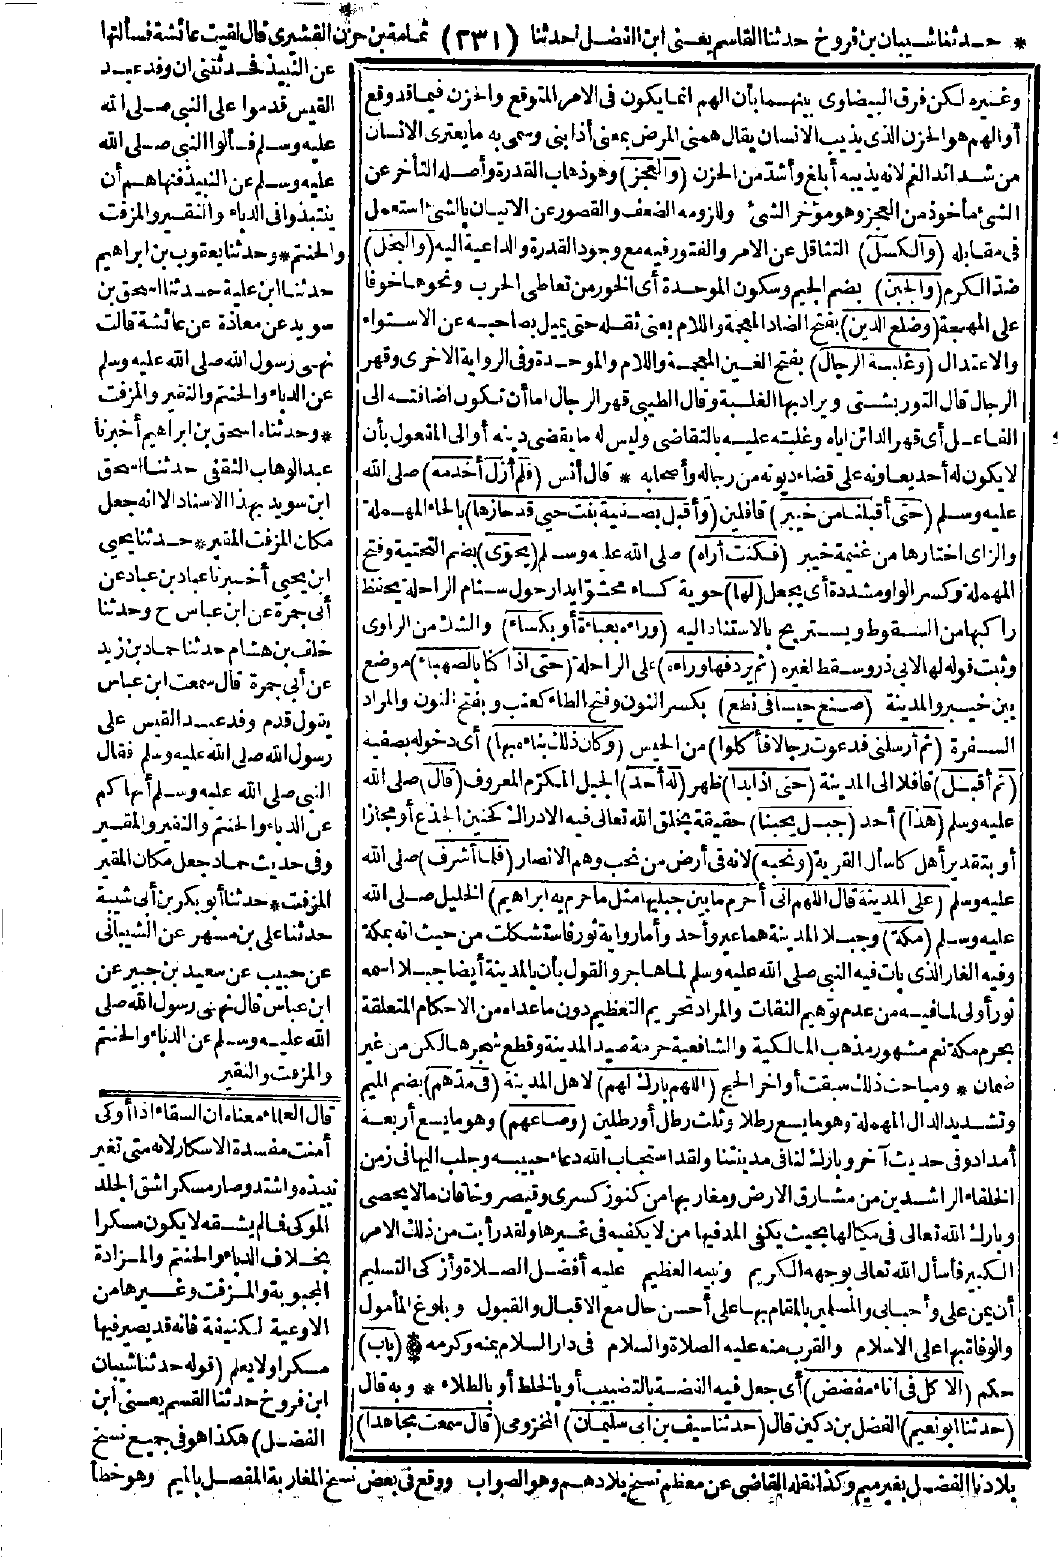 * حدثنا شيبان بن فروخ حدثنا القاسم يعنى ابن الفضل حدثنا (٢٣١) ثمامة بن حزن القشيرى قال لقيت عائشة فسألتها
وغيره لكن فرق البيضاوى بينهما بأن الهم انما يكون فى الامر المتوقع والحزن فيما قد وقع
أو الهم هو الحزن الذى يذيب الانسان يقال همنى المرض بمعنى أذابنى وسمى به ما يعترى الانسان
من شدائد الغم لانه يذيبه أبلغ وأشد من الحزن (والعجز) وهو ذهاب القدرة وأصله التأخر عن
الشئ مأخوذ من العجز وهو مؤخر الشئ وللزومه الضعف والقصور عن الاتيان بالشئ استعمل
فى مقابله (والكسل) التثاقل عن الامر والفتور فيه مع وجود القدرة والداعية اليه (والبخل)
ضد الكرم (والجبن) بضم الجيم وسكون الموحدة أى الخور من تعاطى الحرب ونحوها خوفا
على المهجة (وضلع الدين) بفتح الضاد المعجمة واللام يعنى ثقله حتى يميل بصاحبه عن الاستواء
والاعتدال (وغلبة الرجال) بفتح الغين المعجمة واللام والموحدة وفى الرواية الاخرى وقهر
الرجال قال التوربشتى ويراد بها الغلبة وقال الطيبى قهر الرجال اما أن تكون اضافته الى
الفاعل أى قهر الدائن اياه وغلبته عليه بالتقاضى وليس له ما يقضى دينه أو الى المفعول بأن
لا يكون له أحد يعاونه على قضاء ديونه من رجاله وأصحابه * قال أنس (فلم أزل أخدمه) صلى الله
عليه وسلم (حتى أقبلنا من خيبر) قافلين (وأقبل بصفية بنت حيى قد حازها) بالحاء المهملة
والزاى اختارها من غنيمة خيبر (فكنت أراه) صلى الله عليه وسلم (يحوّى) بضم التحتية وفتح
المهملة وكسر الواو مشددة أى يجعل (لها) حوية كساء محشوّا يدار حول سنام الراحلة يحفظ
راكبها من السقوط ويستريح بالاستناد اليه (وراءه بعباءة أو بكساء) والشك من الراوى
وثبت قوله لها لابى ذر وسقط لغيره (ثم يردفها وراءه) على الراحلة (حتى اذا كنا بالصهباء) موضع
بين خيبر والمدينة (صنع حيسا فى نطع) بكسر النون وفتح الطاء كعنب وبفتح النون والمراد
السفرة (ثم أرسلنى فدعوت رجالا فأكلوا) من الحيس (وكان ذلك بناءه بها) أى دخوله بصفية
(ثم أقبل) قافلا الى المدينة (حتى اذا بدا) ظهر (له أحد) الجبل المكرم المعروف (قال) صلى الله
عليه وسلم (هذا) أحد (جبل يحبنا) حقيقة بخلق الله تعالى فيه الادراك كحنين الجذع أو مجازا
أو بتقدير أهل كاسأل القرية (ونحبه) لانه فى أرض من نحب وهم الانصار (فلما أشرف) صلى الله
عليه وسلم (على المدينة قال اللهم انى أحرم ما بين جبليها مثل ما حرم به ابراهيم) الخليل صلى الله
عليه وسلم (مكة) وجبلا المدينة هما عير وأحد وأما رواية ثور فاستشكلت من حيث انه بمكة
وفيه الغار الذى بات فيه النبى صلى الله عليه وسلم لما هاجر والقول بأن بالمدينة أيضا جبلا اسمه
ثور أولى لما فيه من عدم توهيم الثقات والمراد تحريم التعظيم دون ما عداه من الاحكام المتعلقة
بحرم مكة نعم مشهور مذهب المالكية والشافعية حرمة صيد المدينة وقطع شجرها لكن من غير
ضمان * ومباحث ذلك سبقت أواخر الحج (اللهم بارك لهم) لاهل المدينة (فى مدهم) بضم الميم
وتشديد الدال المهملة وهو ما يسع رطلا وثلث رطل أو رطلين (وصاعهم) وهو ما يسع أربعة
أمداد وفى حديث آخر وبارك لنا فى مدينتنا ولقد استجاب الله دعاء حبيبه وجلب اليها فى زمن
الخلفاء الراشدين من مشارق الارض ومغاربها من كنوز كسرى وقيصر وخاقان ما لا يحصى
وبارك الله تعالى فى مكيالها بحيث يكفى المد فيها من لا يكفيه فى غيرها ولقد رأيت من ذلك الامر
الكبير فأسأل الله تعالى بوجهه الكريم ونبيه العظيم عليه أفضل الصلاة وأزكى التسليم
أن يمن على وأحبابى والمسلمين بالمقام بها على أحسن حال مع الاقبال والقبول وبلوغ المأمول
والوفاة بها على الاسلام والقرب منه عليه الصلاة والسلام فى دار السلام بمنه وكرمه * (باب)
حكم (الاكل فى اناء مفضض) أى جعل فيه الفضة بالتضبيب أو بالخلط أو بالطلاء * وبه قال
(حدثنا أبو نعيم) الفضل بن دكين قال (حدثنا سيف بن أبى سليمان) المخزومى (قال سمعت مجاهدا)
عن النبيذ فحدثتنى ان وفد عبد
القيس قدموا على النبى صلى الله
عليه وسلم فسألوا النبى صلى الله
عليه وسلم عن النبيذ فنهاهم أن
ينتبذوا فى الدباء والنقير والمزفت
والحنتم * وحدثنا يعقوب بن ابراهيم
حدثنا ابن علية حدثنا اسحق بن
سويد عن معاذة عن عائشة قالت
نهى رسول الله صلى الله عليه وسلم
عن الدباء والحنتم والنقير والمزفت
* وحدثناه اسحق بن ابراهيم أخبرنا
عبد الوهاب الثقفى حدثنا اسحق
ابن سويد بهذا الاسناد الا انه جعل
مكان المزفت المقير * حدثنا يحيى
ابن يحيى أخبرنا عباد بن عباد عن
أبى جمرة عن ابن عباس ح وحدثنا
خلف بن هشام حدثنا حماد بن زيد
عن أبى جمرة قال سمعت ابن عباس
يقول قدم وفد عبد القيس على
رسول الله صلى الله عليه وسلم فقال
النبى صلى الله عليه وسلم أنهاكم
عن الدباء والحنتم والنقير والمقير
وفى حديث حماد جعل مكان المقير
المزفت * حدثنا أبو بكر بن أبى شيبة
حدثنا على بن مسهر عن الشيبانى
عن حبيب عن سعيد بن جبير عن
ابن عباس قال نهى رسول الله صلى
الله عليه وسلم عن الدباء والحنتم
والمزفت والنقير
قال العلماء معناه ان السقاء اذا أوكى
أمنت مفسدة الاسكار لانه متى تغير
نبيذه واشتد وصار مسكرا شق الجلد
الموكى فما لم يشقه لا يكون مسكرا
بخلاف الدباء والحنتم والمزادة
المجبوبة والمزفت وغيرها من
الاوعية الكثيفة فانه قد يصير فيها
مسكرا ولا يعلم (قوله حدثنا شيبان
ابن فروخ حدثنا القسم يعنى ابن
الفضل) هكذا هو فى جميع نسخ
بلادنا الفضل بغير ميم وكذا نقله القاضى عن معظم نسخ بلادهم وهو الصواب ووقع فى بعض نسخ المغاربة المفضل بالميم وهو خطأ